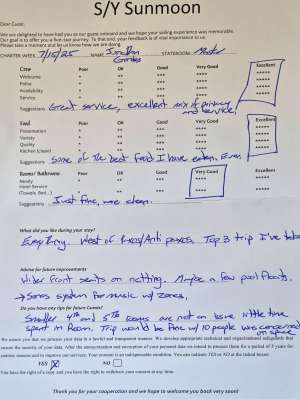 S/Y Sunmoon
Dear Guest,
We are delighted to have had you as our guest onboard and we hope your sailing experience was memorable.
Our goal is to offer you a five-star journey. To that end, your feedback is of vital importance to us.
Please take a moment and let us know how we are doing.
CHARTER WEEK 7/15/25 NAME: Jordan STATEROOM: Master
Crew Poor OK Good Very Good Excellent
Welcome * ** *** **** *****
Polite * ** *** **** *****
Availability * ** *** **** *****
Service * ** *** **** *****
Suggestions Great service, excellent mix of privacy
and service,
Food Poor OK Good Very Good Excellent
Presentation * ** *** **** *****
Variety * ** *** **** *****
Quality * ** *** **** *****
Kitchen
Suggestions Some of the best food I have eaten. Ever.
Rooms/ Bathrooms Poor OK Good Very Good Excellent
Needy * ** *** **** *****
Hotel Service * ** *** **** *****
(Towels, Bed...)
Suggestions Just fine, were clean.
What did you like during your stay?
Everything. West of Paxos/Anti paxos. Top 3 trip I've
Advise for future improvements
Wider front seats on netting. Maybe a few pool floats.
→ Sonos system for music w/ zones.
Do you have any tips for future Guests?
Smaller 4th and 5th rooms are not an issue little time
spent in Room. Trip would be fine w/ 10 people was concerned
on space
We assure you that we process your data in a lawful and transparent manner. We develop appropriate technical and organizational safeguards that
ensure the security of your data. After the anonymization and encryption of your personal data we intend to process them for a period of 5 years for
statistic reasons and to improve our services. Your consent is an indispensable condition. You can indicate YES or NO at the radical boxes:
YES NO
You have the right of a copy and you have the right to withdraw your consent at any time.
Thank you for your cooperation and we hope to welcome you back very soon!